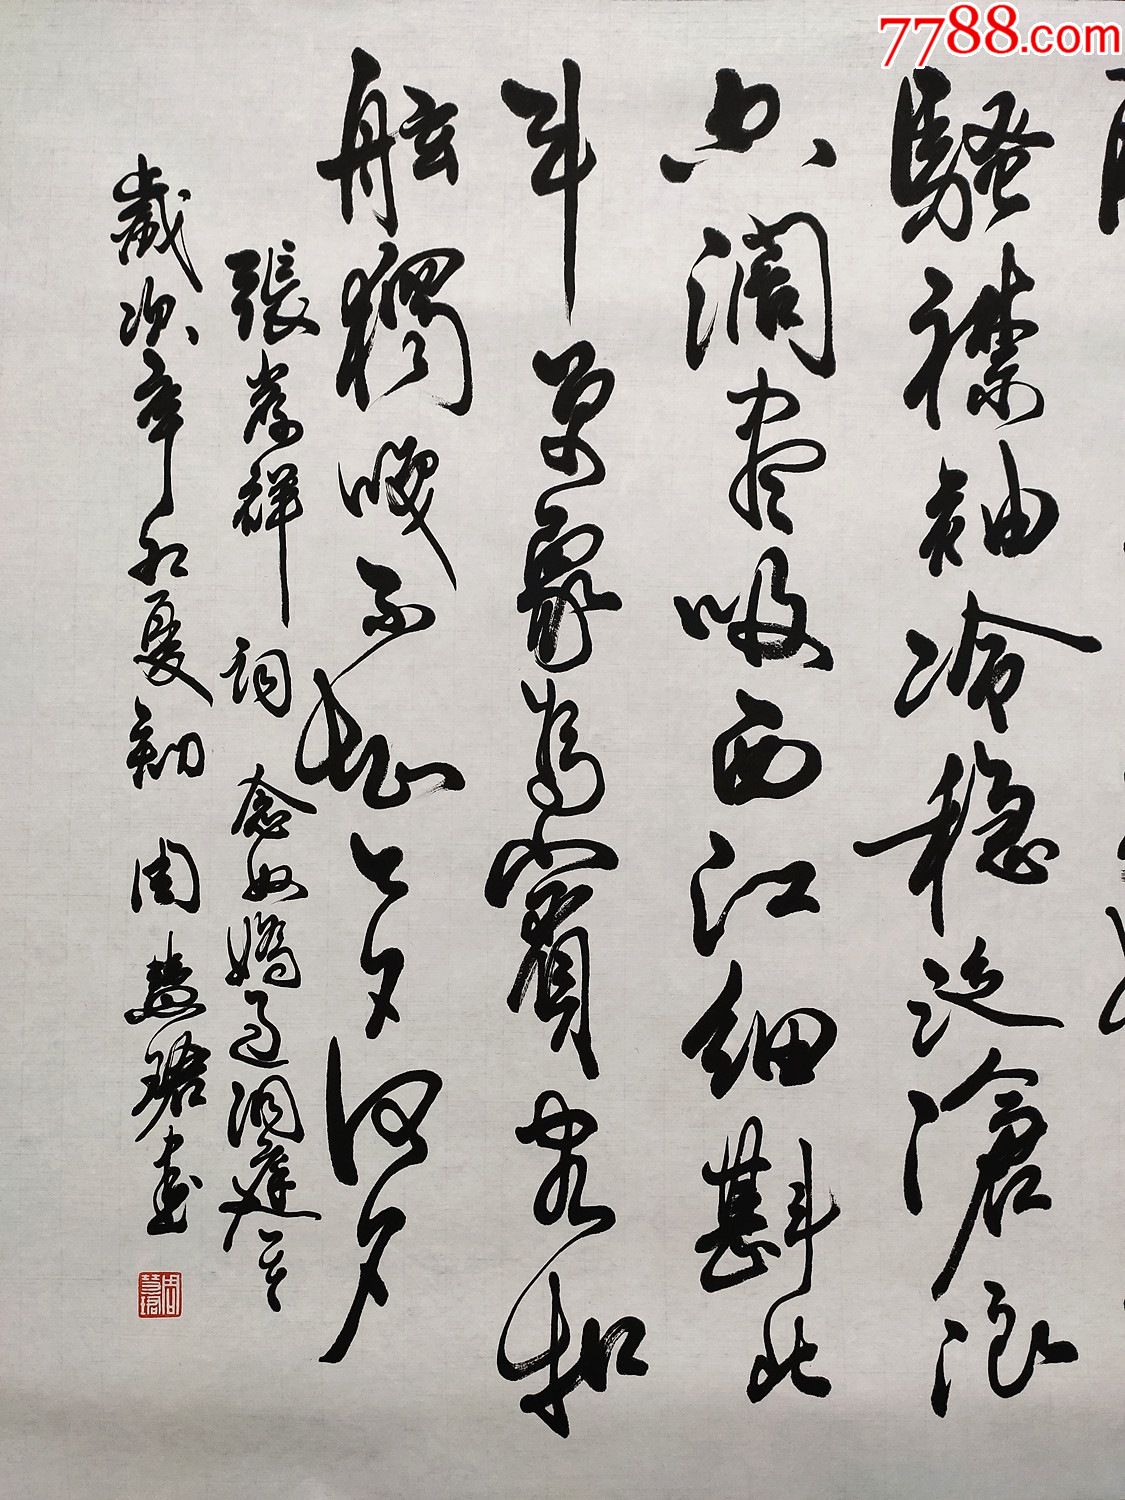 騷襟袖冷穩泛滄浪
空濶盡吸西江細斟北
斗萬象為賓客扣
舷獨嘯不知今夕何夕
張孝祥詞念奴嬌過洞庭
歲次辛卯夏初周慧珺書
周慧珺
7788.com